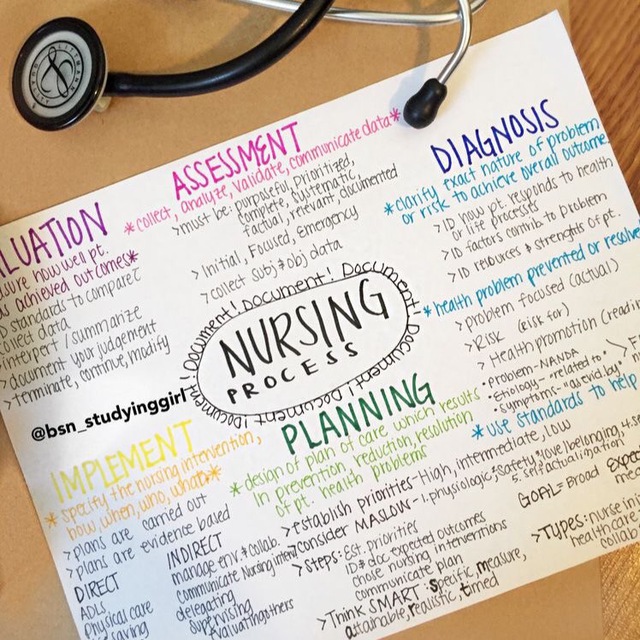 ASSESSMENT
*collect, analyze, validate, communicate data*
>must be: purposeful, prioritized,
complete, systematic,
factual, relevant, documented
>Initial, Focused, Emergency
>collect subj & obj data
DIAGNOSIS
*clarify exact nature of problem
or risk to achieve overall outcome
>ID how pt. responds to health
or life processes
>ID factors contrib to problem
>ID resources & strengths of pt.
*health problem prevented or resolve
>problem focused (actual)
>Risk (risk for)
>Health promotion
•Problem-NANDA
•Etiology- "related to"
•Symptoms- "as evid by"
*use standards to help
LUATION
how well pt.
achieved outcomes*
standards to compare
collect data
interpert / summarize
>document your judgement
>terminate, continue, modify
NURSING
PROCESS
Document! Document! Document! Document! Document! Document!
@bsn_studyinggirl
IMPLEMENT
*specify the nursing intervention,
how, when, who, what*
>plans are carried out
>plans are evidence based
DIRECT
ADLs
physical care
saving
INDIRECT
manage env & collab.
communicate Nursing interv
delegating
supervising
evaluating others
PLANNING
*design of plan of care which results
in prevention, reduction, resolution
of pt. health problems
>establish priorities-High, intermediate, low
>consider MASLOW- 1. physiologic, safety, love/belonging,
5. self actualization
>Steps: Est. priorities
ID & doc expected outcomes
chose nursing interventions
communicate plan
>Think SMART: specific measure,
attainable, realistic, timed
GOAL= Broad
>TYPES: nurse in
health care
collab